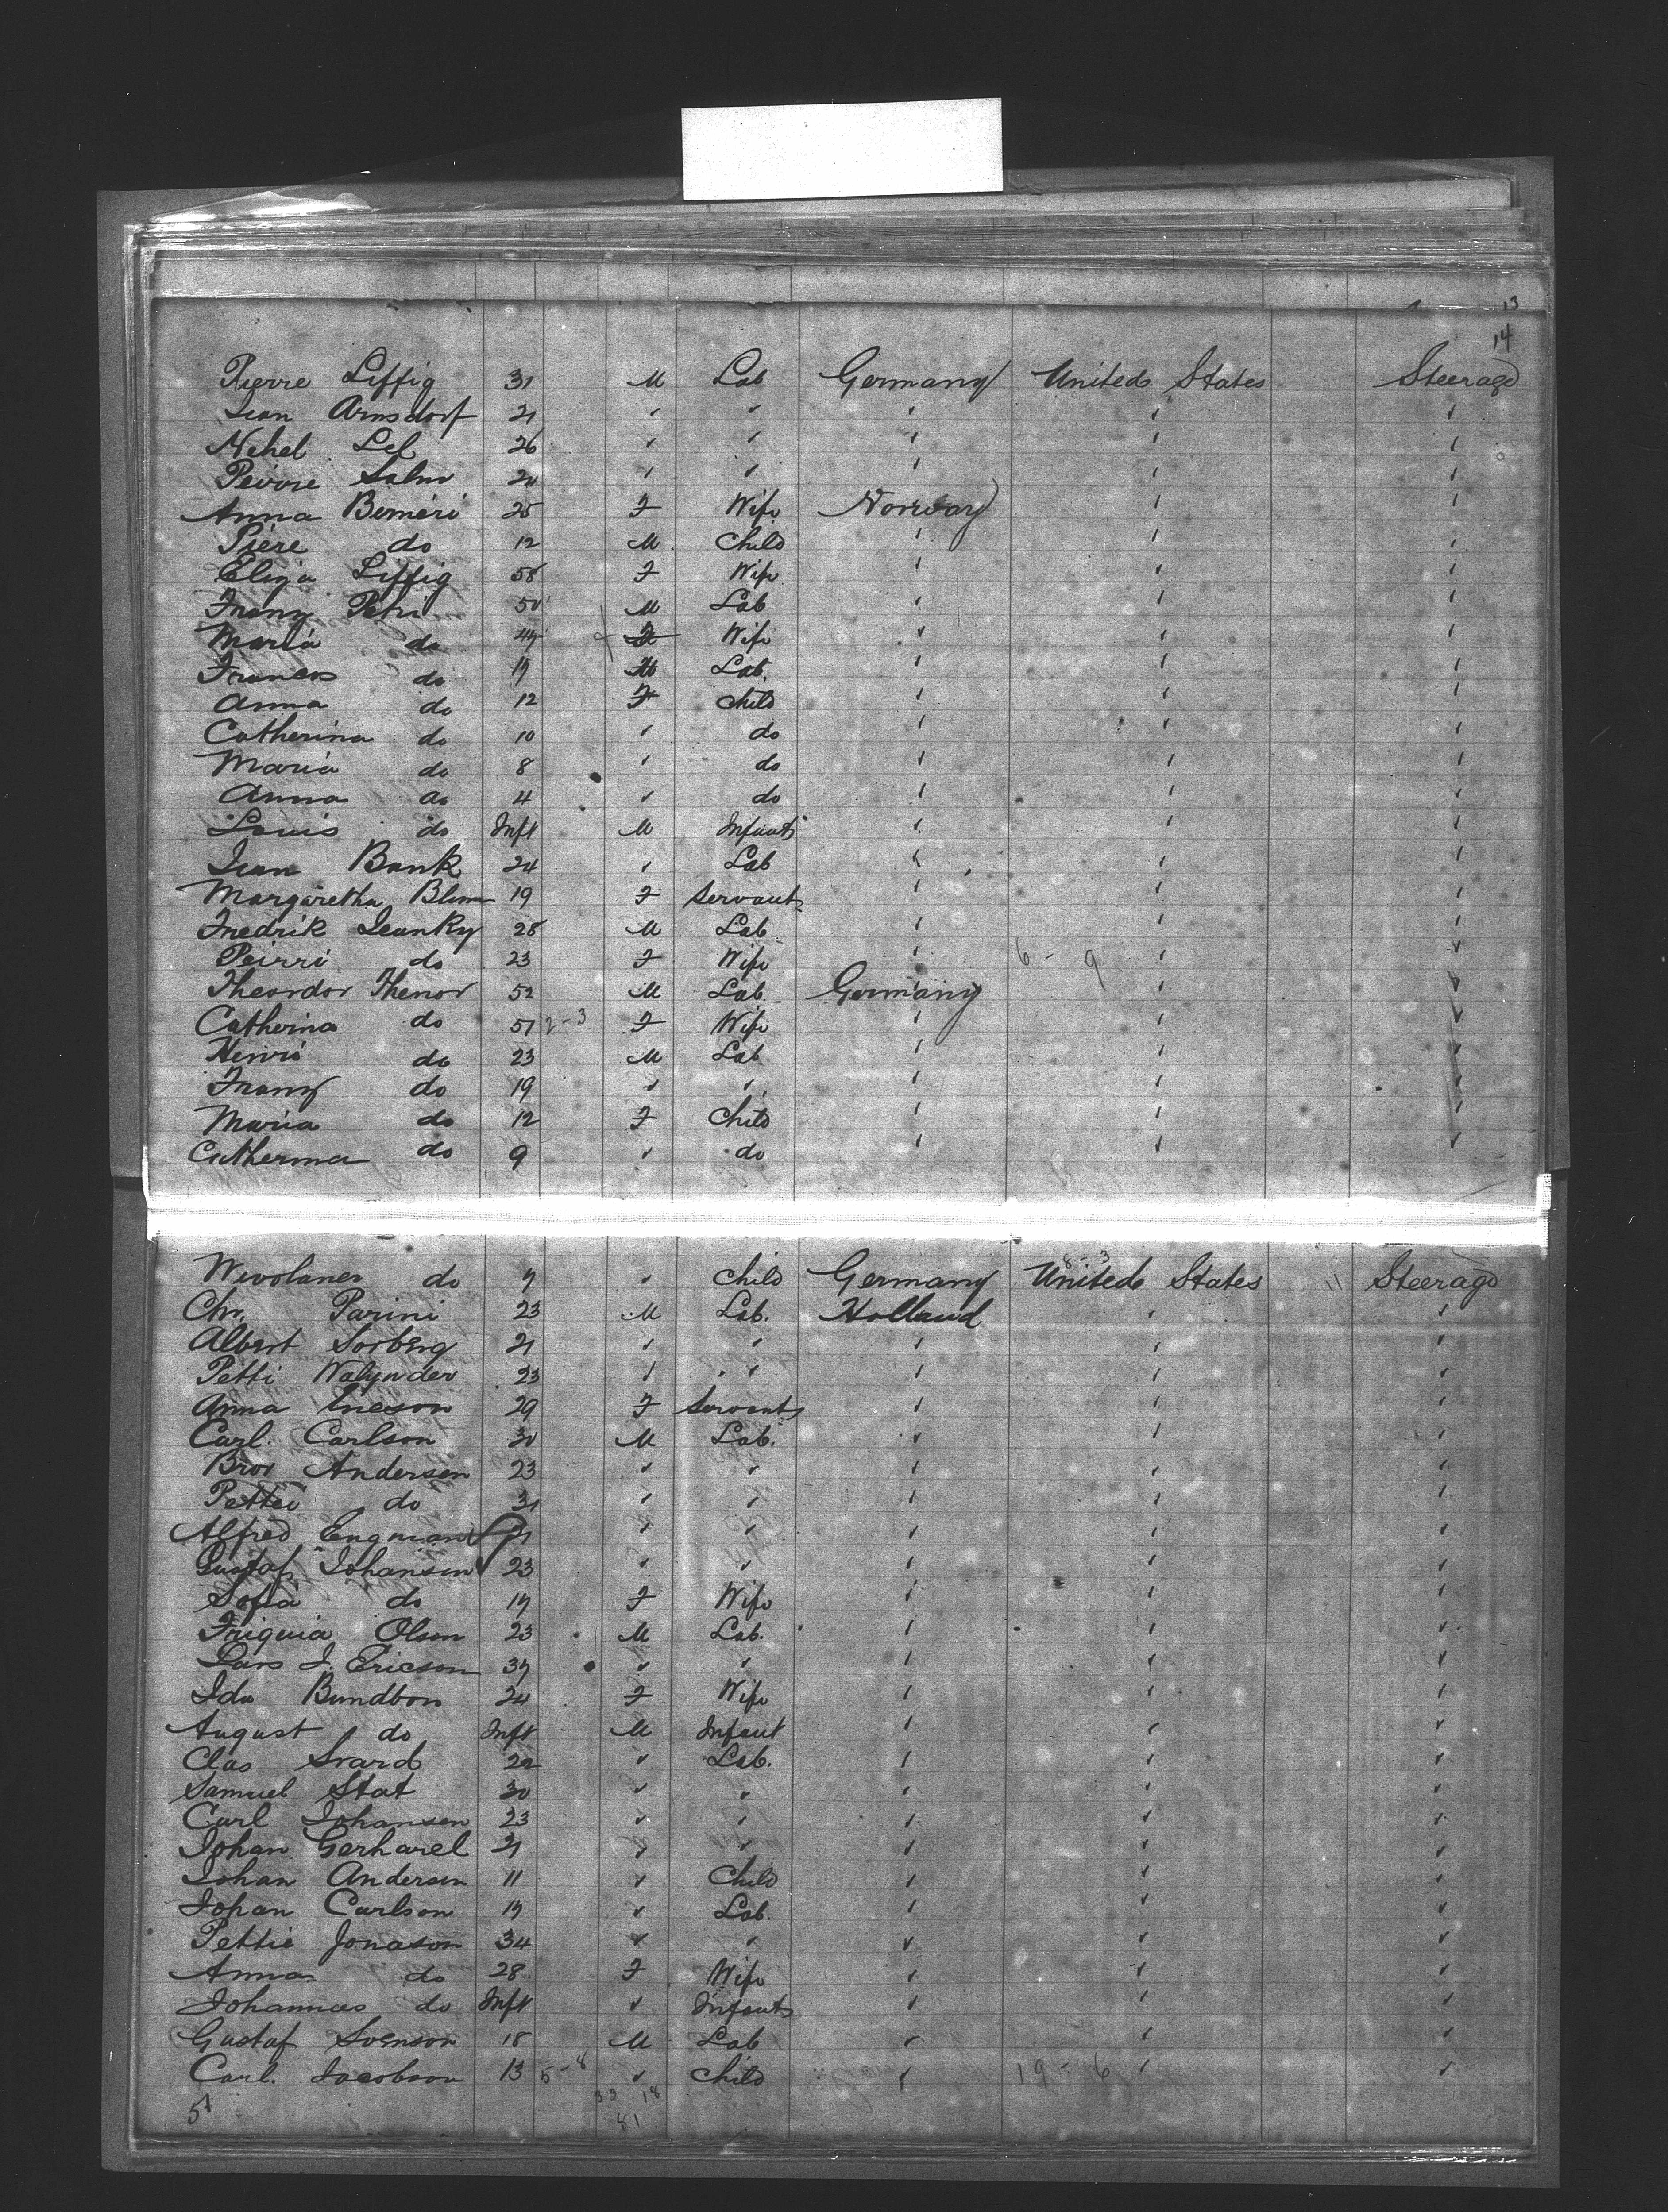 13
14
Pierre Liffig 31 M Lab Germany United States Steerage
Jean Arnsdorf 21 " " " " "
Nehel Lel 26 " " " " "
Peirre Salm 20 " " " " "
Anna Bemeri 25 F Wife Norway " "
Piere do 12 M Child " " "
Eliza Liffig 58 F Wife " " "
Franz Petri 50 M Lab " " "
Maria do 47 F Wife " " "
Francos do 17 M Lab. " " "
Anna do 12 F Child " " "
Catherina do 10 " do " " "
Maria do 8 " do " " "
Anna do 4 " do " " "
Louis do Inft M Infant " " "
Jean Bank 24 " Lab " " "
Margaretha Blum 19 F Servant " " "
Fredrik Jeanky 28 M Lab " " "
Peirri do 23 F Wife " 6 - 9 " "
Theordor Thenor 52 M Lab. Germany " "
Catherina do 51 2-3 F Wife " " "
Henri do 23 M Lab " " "
Franz do 19 " " " " "
Maria do 12 F Child " " "
Catherina do 9 " do " " "
8-3
Wivolaner do 7 " Child Germany United States 11 Steerage
Chr. Parini 23 M Lab. Holland " "
Albert Sorberg 21 " " " " "
Petti Walynder 23 " " " " "
Anna Ericson 29 F Servant " " "
Carl. Carlson 30 M Lab. " " "
Bror Andersen 23 " " " " "
Pettei do 31 " " " " "
Alfred Engman 21 " " " " "
Gustaf Johansen 23 " " " " "
Sofia do 17 F Wife " " "
Friguia Olsen 23 M Lab. " " "
Lars J. Ericson 37 " " " " "
Ida Bundbon 24 F Wife " " "
August do Inft M Infant " " "
Clas Svard 22 " Lab. " " "
Samuel Stat 30 " " " " "
Carl Johansen 23 " " " " "
Johan Gerharel 21 " " " " "
Johan Andersen 11 " Child " " "
Johan Carlson 17 " Lab. " " "
Pettie Jonason 34 " " " " "
Anna do 28 F Wife " " "
Johannes do Inft " Infant " " "
Gustaf Svenson 18 M Lab " " "
Carl. Jacobson 13 5-8 " Child " 19-6 " "
51 33 18
81